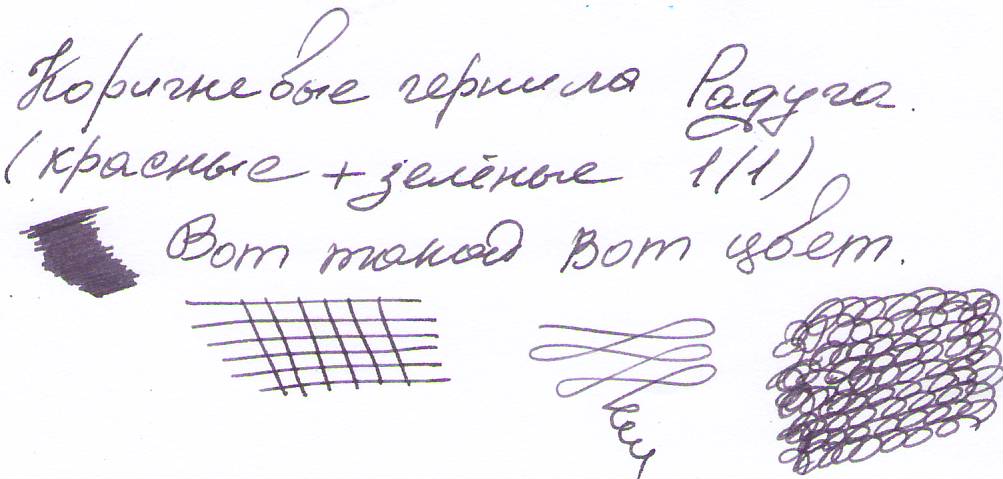 Коричневые чернила Радуга.
(красные + зелёные 1/1)
Вот такой вот цвет.